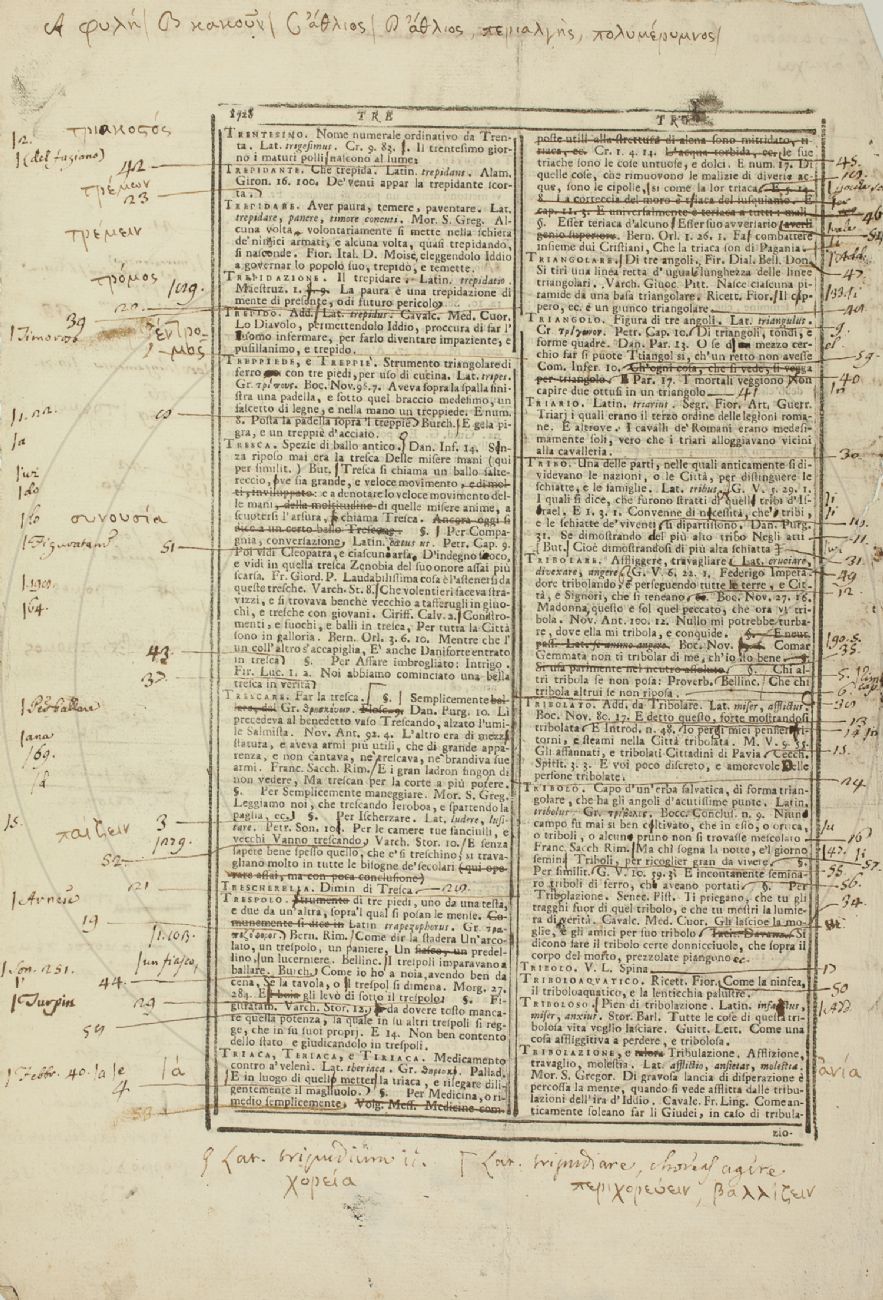 A φυλή / B κακοῦν / C ἄθλιος / D ἄθλιος, περιαλγής, πολυμέριμνος /
1728 TRE
TRENTESIMO. Nome numerale ordinativo da Tren-
ta. Lat. trigesimus. Gr. 9. 83. Il trentesimo gior-
no i maturi polli nascono al lume
TREPIDANTE. Che trepida. Latin. trepidans. Alam.
Giron. 16. 100. De' venti appar la trepidante scor-
ta.
TREPIDARE. Aver paura, temere, paventare. Lat.
trepidare, pavere, timore concuti. Mor. S. Greg. Al-
cuna volta volontariamente si mette nella schiera
de' nimici armati, e alcuna volta, quasi trepidando,
si nasconde. Fior. Ital. D. Moise, eleggendolo Iddio
a governar lo popolo suo, trepidò, e temette.
TREPIDAZIONE. Il trepidare. Latin. trepidatio.
Maestruz. 1. 9. La paura è una trepidazione di
mente di presente, o di futuro pericolo
TREPIDO. Add. Lat. trepidus. Cavalc. Med. Cuor.
Lo Diavolo, permettendolo Iddio, proccura di far l'
uomo infermare, per farlo diventare impaziente, e
pusillanimo, e trepido.
TREPPIEDE, E TREPPIÈ. Strumento triangolare di
ferro con tre piedi, per uso di cucina. Lat. tripes.
Gr. τρίπους. Boc. Nov. 96. 7. Aveva sopra la spalla sini-
stra una padella, e sotto quel braccio medesimo, un
fascetto di legne, e nella mano un treppiede. E num.
8. Posta la padella sopra 'l treppiè Burch. E gela pi-
gra, e un treppiè d'acciaio.
TRESCA. Spezie di ballo antico. Dan. Inf. 14. Sen-
za riposo mai era la tresca Delle misere mani (qui
per similit.) But. Tresca si chiama un ballo salte-
reccio, ove sia grande, e veloce movimento, e di mol-
ti, inviluppato: e a denotare lo veloce movimento del-
le mani, della moltitudine di quelle misere anime, a
scuotersi l'arsura, chiama Tresca. Ancora oggi si
dice a un certo ballo Trescone. §. Per Compa-
gnia, conversazione, Latin. coetus us. Petr. Cap. 9.
Poi vidi Cleopatra, e ciascun' arsa D'indegno foco,
e vidi in quella tresca Zenobia del suo onore assai più
scarsa. Fr. Giord. P. Laudabilissima cosa è l'astenersi da
queste tresche. Varch. St. 8. Che volentieri faceva stra-
vizzi, e si trovava benchè vecchio a tafferugli in gino-
chi, e tresche con giovani. Ciriff. Calv. 2. Con istro-
menti, e suochi, e balli in tresca, Per tutta la Città
sono in galloria. Bern. Orl. 3. 6. 10. Mentre che l'
un coll'altro s'accapiglia, E' anche Daniforte entrato
in tresca §. Per Affare imbrogliato: Intrigo.
Fir. Luc. 1. 2. Noi abbiamo cominciato una bella
tresca in verità
TRESCARE. Far la tresca. §. Semplicemente bal-
lare, Gr. Dan. Purg. 10. Lì
precedeva al benedetto vaso Trescando, alzato l'umi-
le Salmista. Nov. Ant. 92. 4. L'altro era di mezza
statura, e aveva armi più utili, che di grande appa-
renza, e non cantava, nè trescava, nè brandiva sue
armi. Franc. Sacch. Rim. E i gran ladron fingon di
non vedere, Ma trescan per la corte a più potere.
§. Per Semplicemente maneggiare. Mor. S. Greg.
Leggiamo noi, che trescando Ieroboa, e spartendo la
paglia, ec. §. Per Ischerzare. Lat. ludere, lusi-
tare. Petr. Son. 10. Per le camere tue fanciulli, e
vecchi Vanno trescando, Varch. Stor. 10. E senza
sapere bene spesso quello, che e' si treschino, si trava-
gliano molto in tutte le bisogne de' secolari (qui ope-
rare assai, ma con poca conclusione)
TRESCHERELLA. Dimin di Tresca
TRESPOLO. Strumento di tre piedi, uno da una testa,
e due da un'altra, sopra 'l qual si posan le mense. Co-
munemente si dice in Latin trapezophorus. Gr. τρα-
πεζοφόρον Bern. Rim. Come dir la stadera Un'arco-
laio, un trespolo, un paniere, Un fiasco, un predel-
lino, un lucerniere. Bellinc. I trespoli imparavano a
ballare. Burch. Come io ho a noia, avendo ben da
cena, Se la tavola, o il trespol si dimena. Morg. 27.
284. E gli levò di sotto il trespolo §. Fi-
guratam. Varch. Stor. 12. da dovere tosto manca-
re quella potenza, la quale in su altri trespoli si reg-
ge, che in su suoi proprj. E 14. Non ben contento
dello stato e giudicandolo in trespoli.
TRIACA, TERIACA, E TIRIACA. Medicamento
contro a' veleni. Lat. theriaca. Gr. θηριακή. Pallad.
E in luogo di quello metter la triaca, e rilegare dili-
gentemente il magliuolo. §. Per Medicina, o ri-
medio semplicemente. Volg. Mess. Medicine com-
TRO
poste utili alla strettura di alena sono mitridato, ti-
riaca, ec. Cr. 1. 4. 14. L'acqua torbida, ec. le sue
triache sono le cose untuose, e dolci. E num. 17. Di
quelle cose, che rimuovono le malizie di diverse ac-
que, sono le cipolle, si come la lor triaca. E 5. 14.
8. La corteccia del moro è triaca del jusquiamo. E
cap. 11. 3. E universalmente è teriaca a tutti i mali
§. Esser teriaca d'alcuno Esser suo avversario averli
genio superiore. Bern. Orl. 1. 26. 1. Fa combattere
insieme dui Cristiani, Che la triaca son di Pagania.
TRIANGOLARE. Di tre angoli. Fir. Dial. Bell. Don.
Si tiri una linea retta d'ugual lunghezza delle linee
triangolari. Varch. Giuoc. Pitt. Nasce ciascuna pi-
ramide da una basa triangolare. Ricett. Fior. Il cip-
pero, ec. è un giunco triangolare
TRIANGOLO. Figura di tre angoli. Lat. triangulus.
Gr. τρίγωνον. Petr. Cap. 10. Di triangoli, tondi, e
forme quadre. Dan. Par. 13. O se del mezzo cer-
chio far si puote Triangol sì, ch'un retto non avesse
Com. Infer. 10. Ch'ogni cosa, che si vede, si vegga
per triangolo. Par. 17. I mortali veggiono Non
capire due ottusi in un triangolo
TRIARIO. Latin. triarius. Segr. Fior. Art. Guerr.
Triarj i quali erano il terzo ordine delle legioni roma-
ne. E altrove. I cavalli de' Romani erano medesi-
mamente soli, vero che i triari alloggiavano vicini
alla cavalleria.
TRIBO. Una delle parti, nelle quali anticamente si di-
videvano le nazioni, o le Città, per distinguere le
schiatte, e le famiglie. Lat. tribus. G. V. 5. 29. 1.
I quali si dice, che furono stratti di quelle tribi d'Is-
rael. E 1. 3. 1. Convenne di necessità, che' tribi,
e le schiatte de' viventi si dipartissono. Dan. Purg.
31. Se dimostrando del più alto tribo Negli atti.
But. Cioè dimostrandosi di più alta schiatta
TRIBOLARE. Affliggere, travagliare. Lat. cruciare,
divexare, angere. G. V. 6. 22. 1. Federigo Impera-
dore tribolando, e perseguendo tutte le terre, e Cit-
tà, e Signori, che si teneano ec. Boc. Nov. 27. 16.
Madonna, questo è sol quel peccato, che ora vi tri-
bola. Nov. Ant. 100. 12. Nullo mi potrebbe turba-
re, dove ella mi tribola, e conquide. §. E neut.
pass. Lat. se animo angere. Boc. Nov. Comar
Gemmata non ti tribolar di me, ch'io sto bene §.
Si usa parimente nel neutro assoluto §. Chi al-
tri tribola se non posa: Proverb. Bellinc. Che chi
tribola altrui se non riposa.
TRIBOLATO. Add. da Tribolare. Lat. miser, afflictus.
Boc. Nov. 80. 17. E detto questo, forte mostrandosi
tribolata E Introd. n. 48. Io perdi miei pensieri
torni, e steami nella Città tribolata. M. V. 9. 35.
Gli affannati, e tribolati Cittadini di Pavia Tecch.
Spirit. 3. 3. E voi poco discreto, e amorevole Delle
persone tribolate.
TRIBOLO. Capo d'un' erba salvatica, di forma trian-
golare, che ha gli angoli d'acutissime punte. Latin.
tribolus Gr. τρίβολος. Bocc. Conclus. n. 9. Niun
campo fu mai sì ben coltivato, che in esso, o ortica,
o triboli, o alcun pruno non si trovasse mescolato
Franc. Sacch Rim. Ma chi sogna la notte, e 'l giorno
semina Triboli, per ricoglier gran da vivere §.
Per similit. G. V. 10. 59. 3. E incontanente semina-
ro triboli di ferro, che aveano portati §. Per
Tribolazione. Senec. Pist. Ti priegano, che tu gli
tragghi fuor di quel tribolo, e che tu mostri la lumie-
ra di verità. Cavalc. Med. Cuor. Gli lascioe la mo-
glie, e gli amici per suo tribolo Si
dicono fare il tribolo certe donnicciuole, che sopra il
corpo del morto, prezzolate piangono ec.
TRIBOLO. V. L. Spina
TRIBOLOAQUATICO. Ricett. Fior. Come la ninfea,
il triboloaquatico, e la lenticchia palustre.
TRIBOLOSO. Pien di tribolazione. Latin. infaustus,
miser, anxius. Stor. Barl. Tutte le cose di questa tri-
bolosa vita voglio lasciare. Guitt. Lett. Come una
cosa affliggitiva a perdere, e tribolosa.
TRIBOLAZIONE, E Tribulazione. Afflizione,
travaglio, molestia. Lat. afflictio, anxietas, molestia.
Mor. S. Gregor. Di gravosa lancia di disperazione è
percossa la mente, quando si vede afflitta dalle tribu-
lazioni dell'ira d'Iddio. Cavalc. Fr. Ling. Come an-
ticamente soleano far li Giudei, in caso di tribula-
zio-
τριακοσός
(del fagiano)
42
τρέμων
23
τρεμειν
τρόμος
/ prg.
39
ἔντρο-
μος
συνουσία
Figuratam
51
43
37
παίζειν
3
/ prg.
52
21
19
/ un fiasco,
Son. 251.
44
Turpin
29
54
Febbr. 40.
45.
46
47
59.
40
41
30
31
49
12
35
13
15
24
57
55
56
34
50
/ Add.
ἀνία
§ Lat. tripudium ii. Γ Lat. tripudiare, choreas agere.
χορεία περιχορεύειν, βαλλίζειν